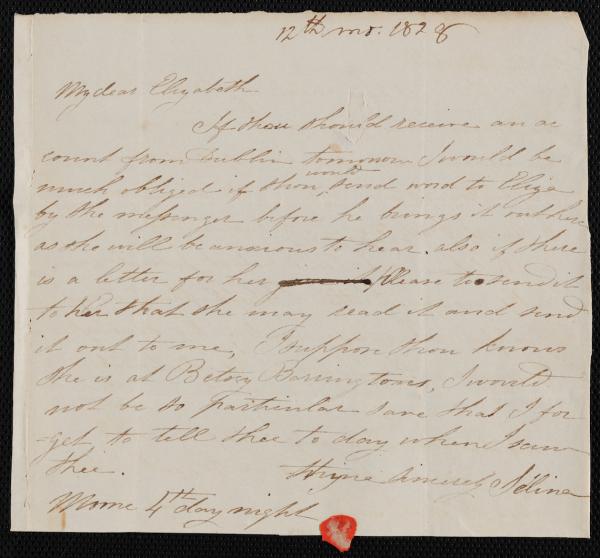 12th mo. 1828
My dear Elizabeth
If thou should receive an ac
count from Dublin tomorrow I would be
much obliged if thou would send word to Eliza
by the messenger before he brings it out here
as she will be anxious to hear. also if there
is a letter for her please to send it
to her that she may read it and send
it out to me, I suppose thou knows
she is at Betsey Barringtons, I would
not be so particular save that I for
-get to tell thee to day when I saw
thee. thyne sincerely Selina
4th day night